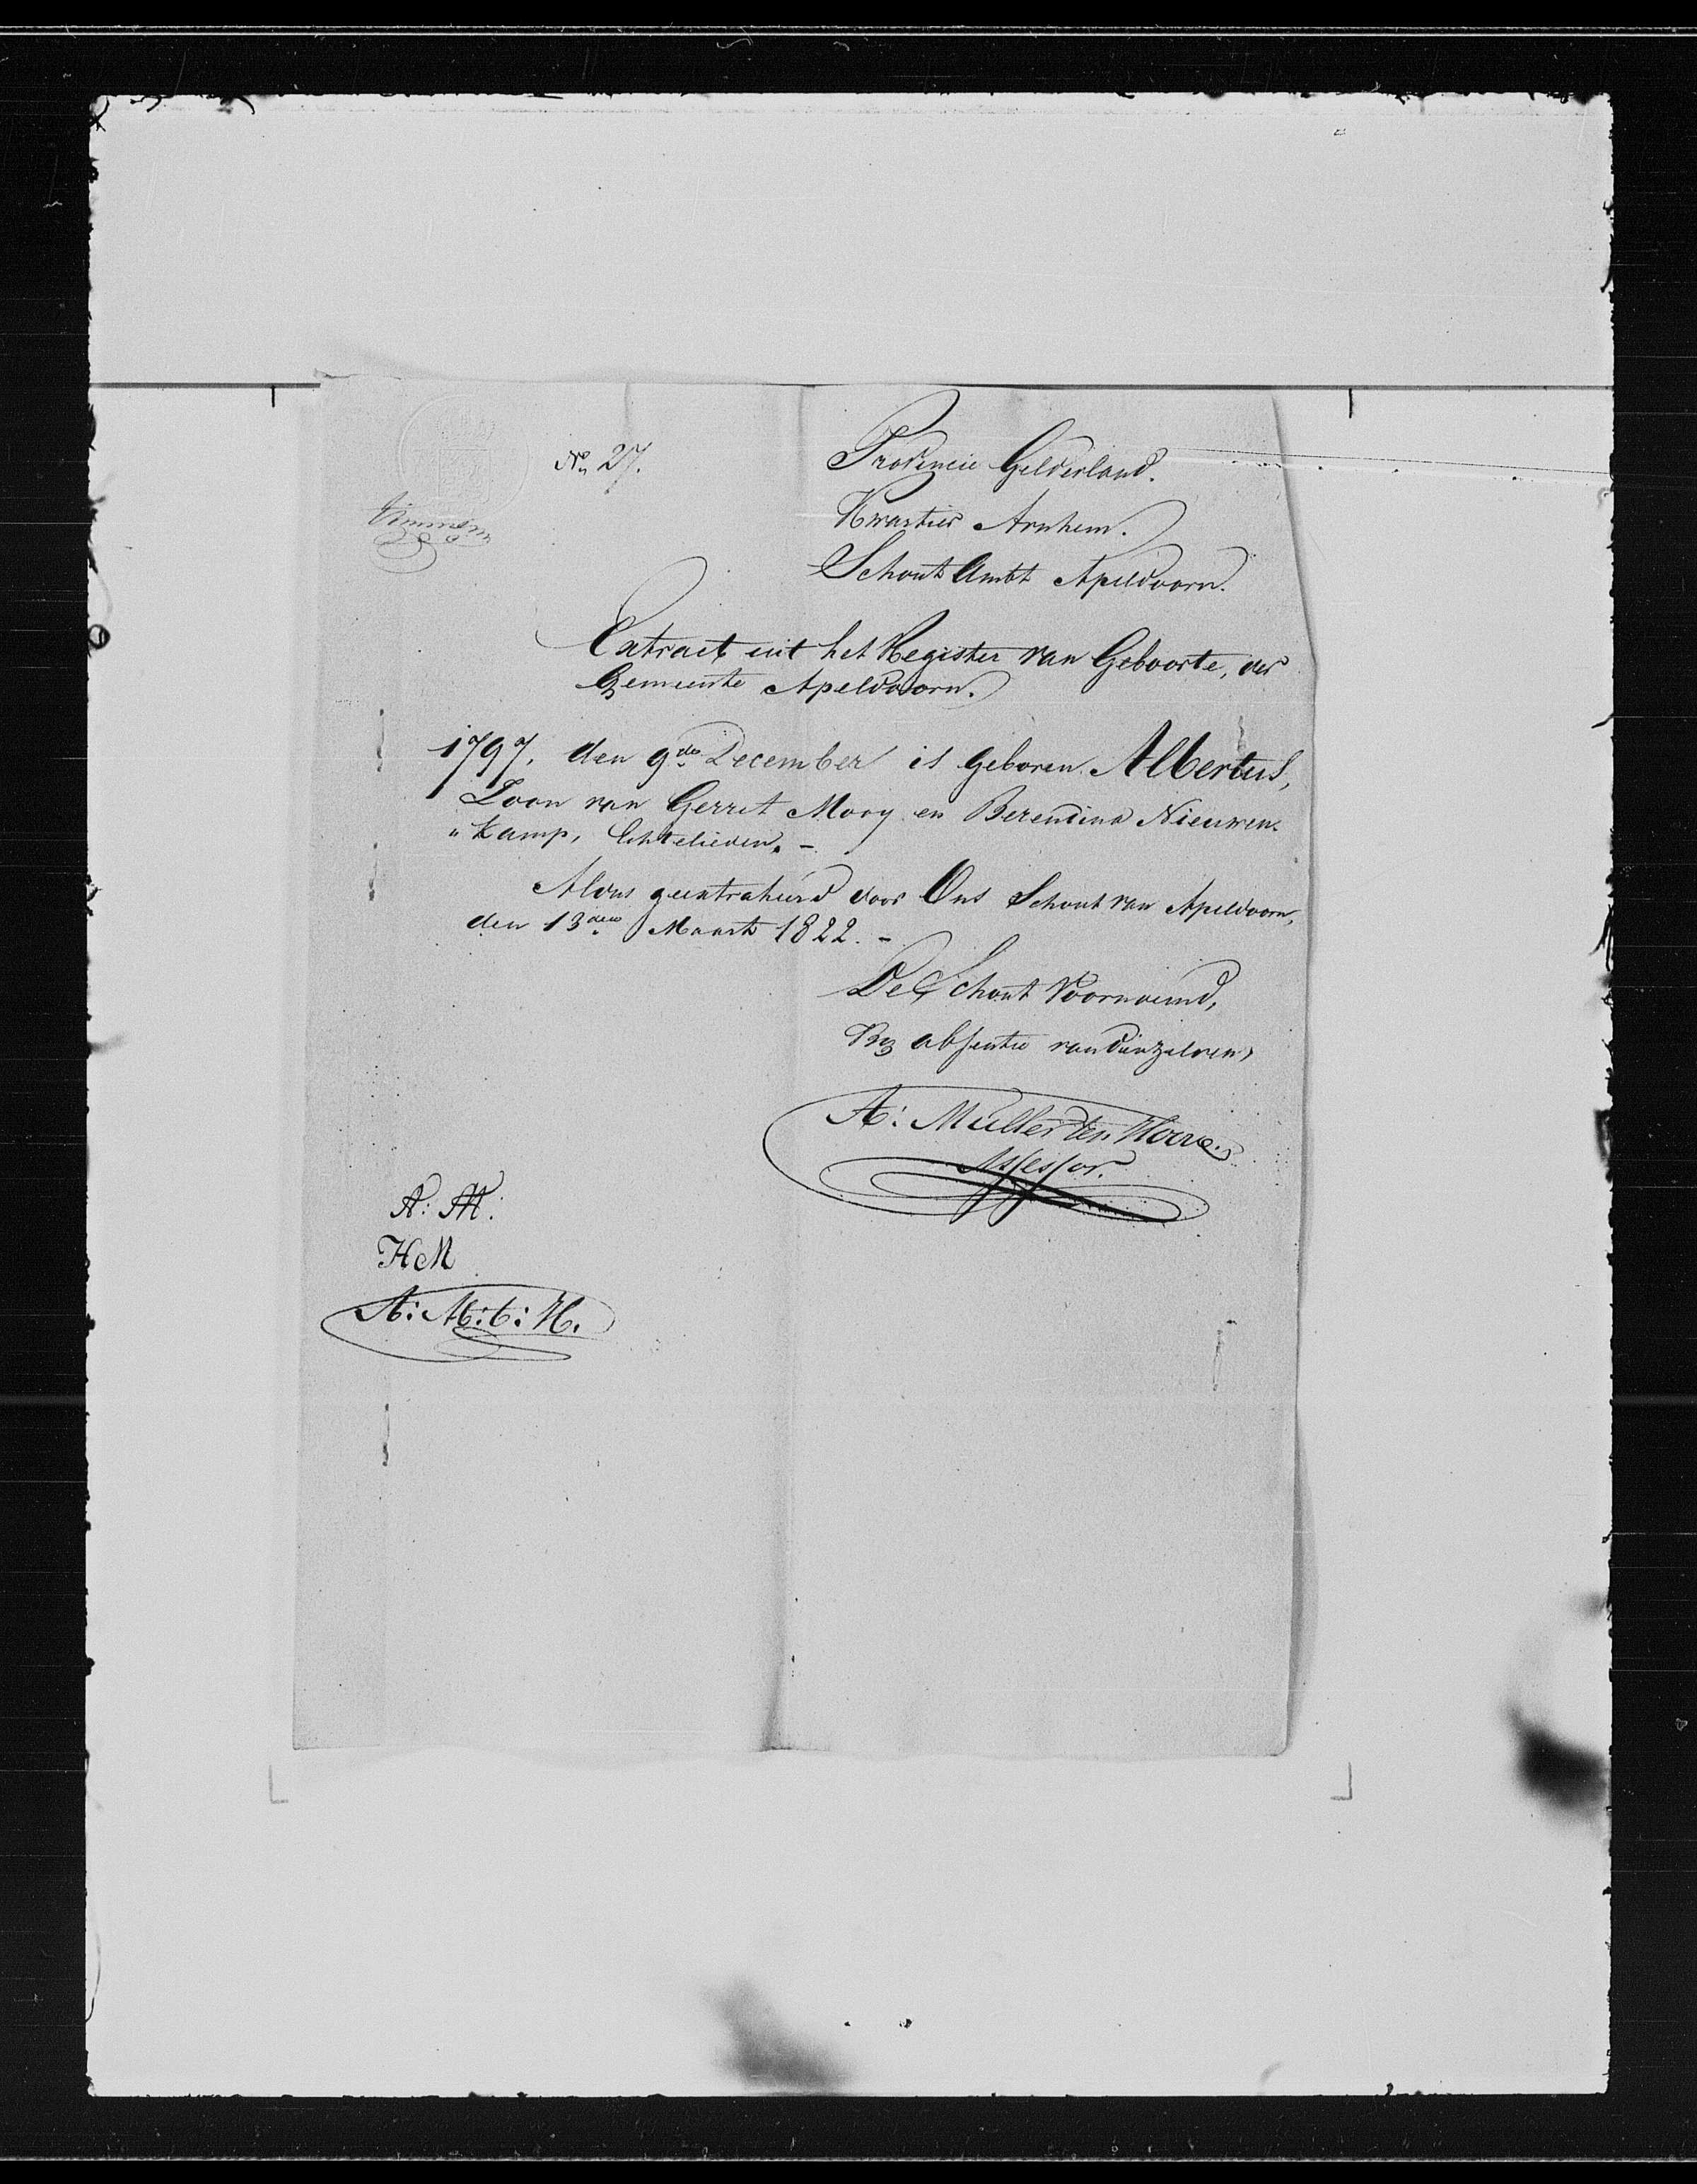 No 27.
Provincie Gelderland.
Kwartier Arnhem.
Schout Ambt Apeldoorn.
Extract uit het Register van Geboorte, der
Gemeente Apeldoorn.
1797, den 9de December is geboren Albertus,
Zoon van Gerret Mooy en Berendina Nieuwen-
"kamp, Echtelieden. -
Aldus geextraheerd door Ons Schout van Apeldoorn,
den 13den Maart 1822. -
De Schout Voornoemd,
By absentie van denzelven,
A: Muller ten Hoove.
Assessor.
A: M:
HM
A: M: t: H.